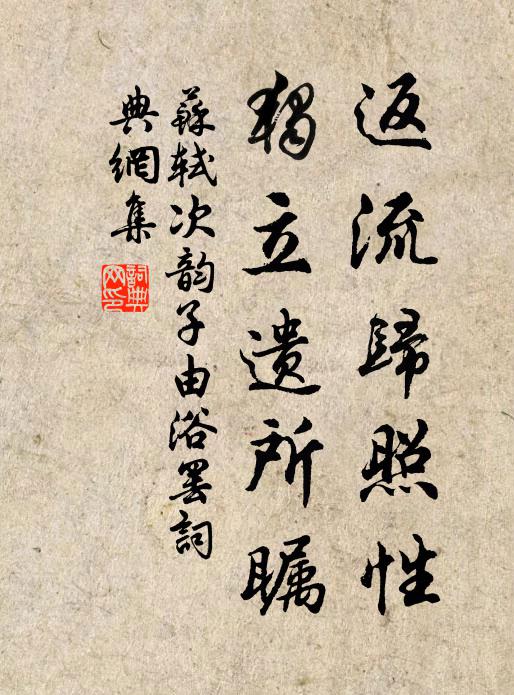 返流歸照性
獨立遺所矚
蘇軾次韵子由浴罢詞
典網集
詞典
网印